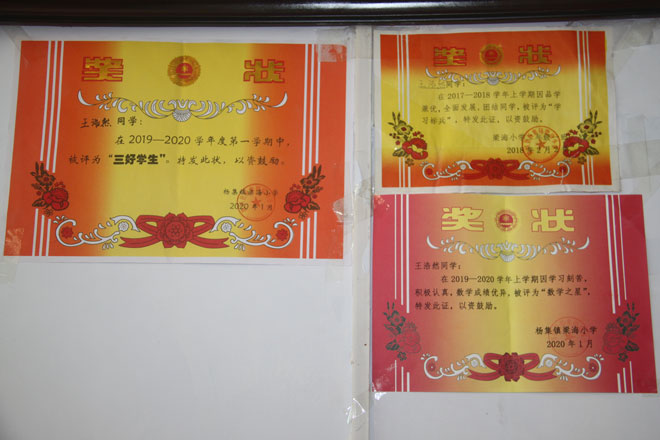 奖 状
王浩然 同学:
在2019—2020学年度第一学期中,
被评为"三好学生"。特发此状,以资鼓励。
杨集镇梁海小学
2020年1月
奖 状
王浩然同学:
在2017—2018学年上学期因品学
兼优,全面发展,团结同学,被评为"学
习标兵",特发此证,以资鼓励。
梁海小学
2018年2月
奖 状
王浩然同学:
在2019—2020学年上学期因学习刻苦,
积极认真,数学成绩优异,被评为"数学之星",
特发此证,以资鼓励。
杨集镇梁海小学
2020年1月